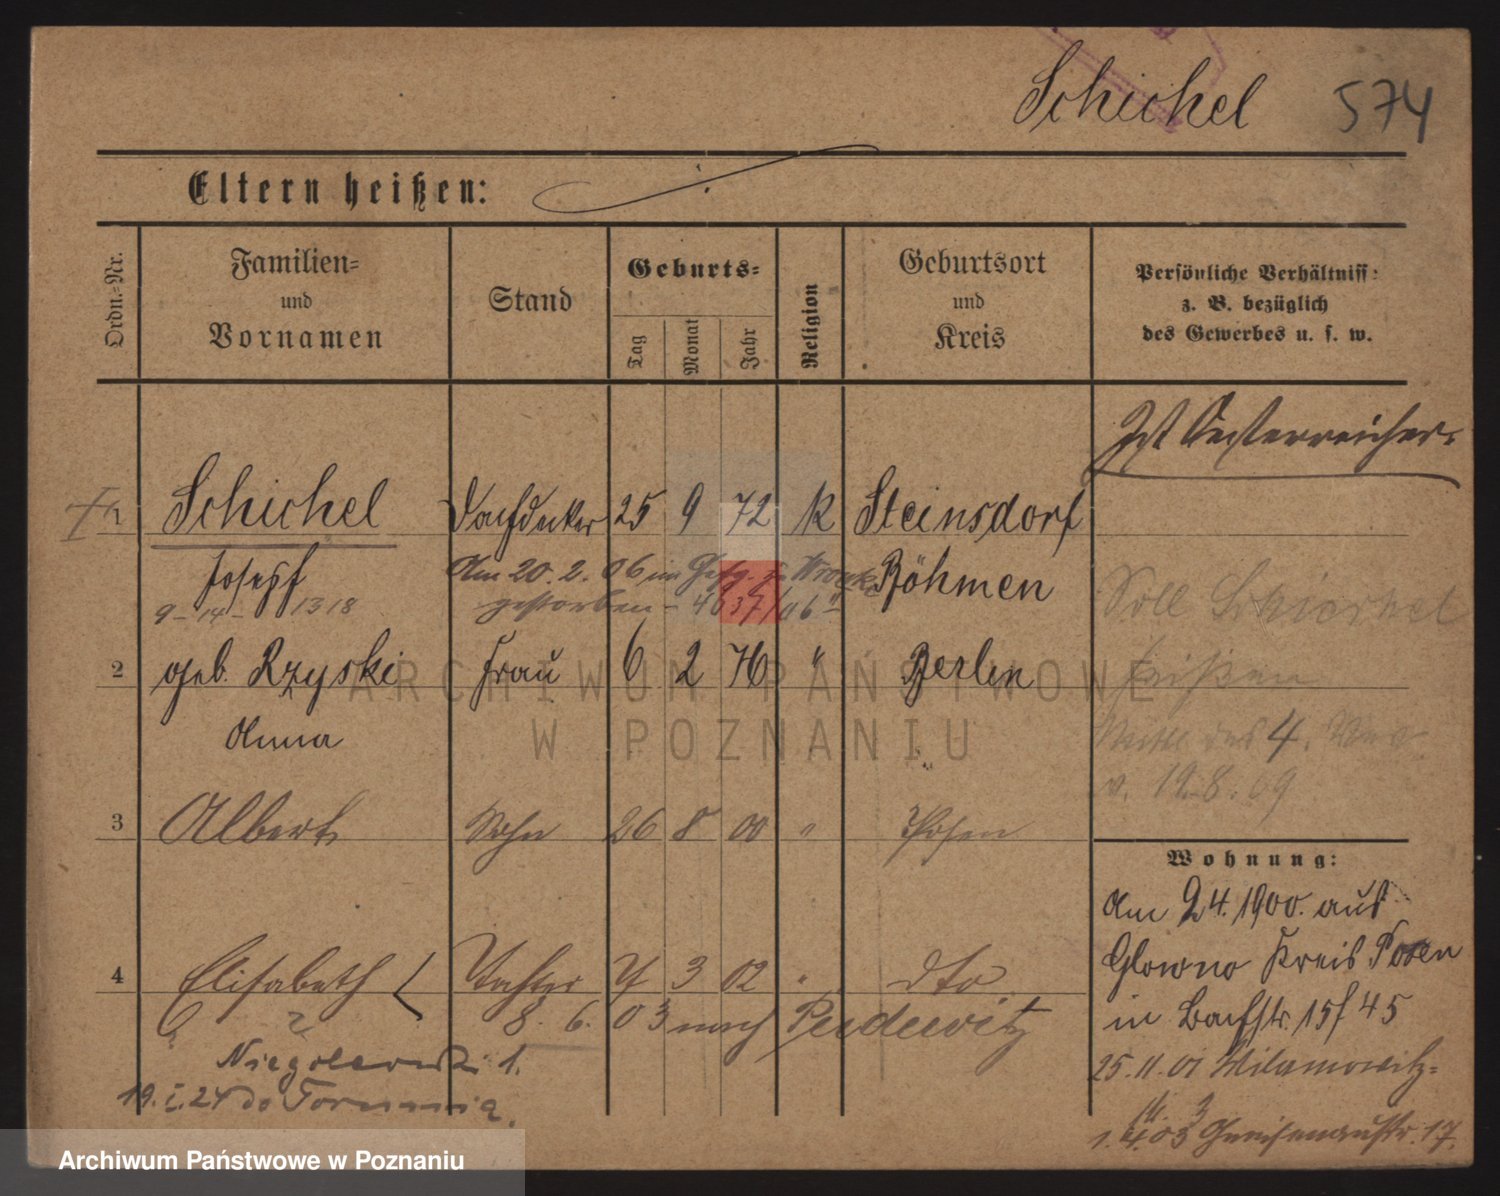 Schichel 574
Eltern heißen:
Ordn.-Nr.
Familien-
und
Vornamen
Stand
Geburts-
Tag
Monat
Jahr
Religion
Geburtsort
und
Kreis
Persönliche Verhältniss-
z. B. bezüglich
des Gewerbes u. s. w.
Ist Oesterreicher.
Schichel Dachdecker 25 9 72 k Steinsdorf
Joseph Böhmen
Am 20. 2. 06 im Gefg. zu Wronke
gestorben - 4637/06
9 - 14 - 1318
Soll Schierhel
heißen
4.
v. 19.8.09
2 geb. Rzyski Frau 6 2 76 " Berlin
Anna
3 Albert Sohn 26 8 00 " Posen
Wohnung:
Am 2 4. 1900. aus
Glowno Kreis Posen
in Bachstr. 15 f 45
25.11.01 Wilamowitz-
1. 4. 03 Gneisenaustr. 17.
4 Elisabeth Tochter 4 3 02 " dto
8. 6. 03 nach Pudewitz
1.
19. I. 24 do
ARCHIWUM PAŃSTWOWE
W POZNANIU
Archiwum Państwowe w Poznaniu